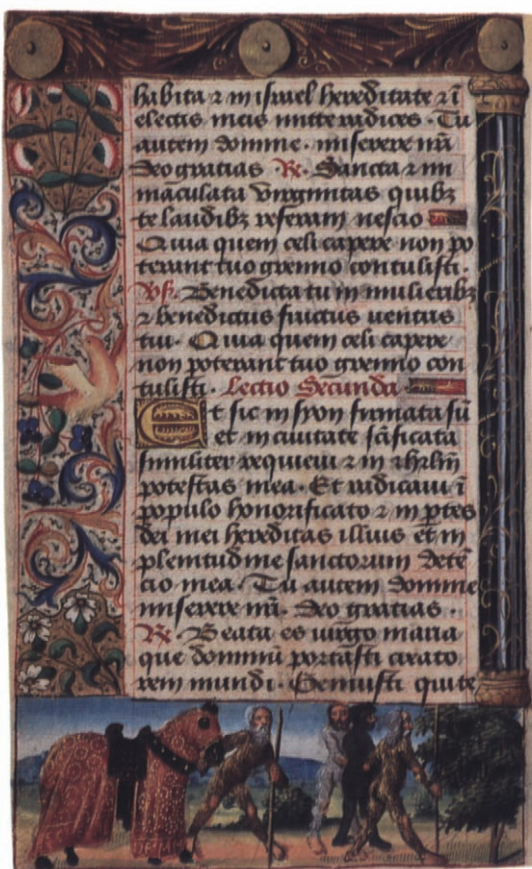 habita ⁊ in israel hereditate ⁊ ī
electis meis mitte radices · Tu
autem domine · miserere nr̄i
deo gratias R̃. Sancta ⁊ im
maculata virginitas quibꝫ
te laudibꝫ referam nescio
Quia quem celi capere non po
terant tuo gremio contulisti ·
Vs̃. Benedicta tu in mulieribꝫ
⁊ benedictus fructus ventris
tui · Quia quem celi capere
non poterant tuo gremio con
tulisti · Lectio Secunda
Et sic in syon firmata sū
et in civitate sc̄ificata
similiter requievi ⁊ in ihrl̄m
potestas mea · Et radicavi ī
populo honorificato ⁊ in ꝑtes
dei mei hereditas illius et in
plenitudine sanctorum deten
cio mea · Tu autem domine
miserere nr̄i · deo gratias ·
R̃. Beata es virgo maria
que dominū portasti creato
rem mundi · Genuisti qui te